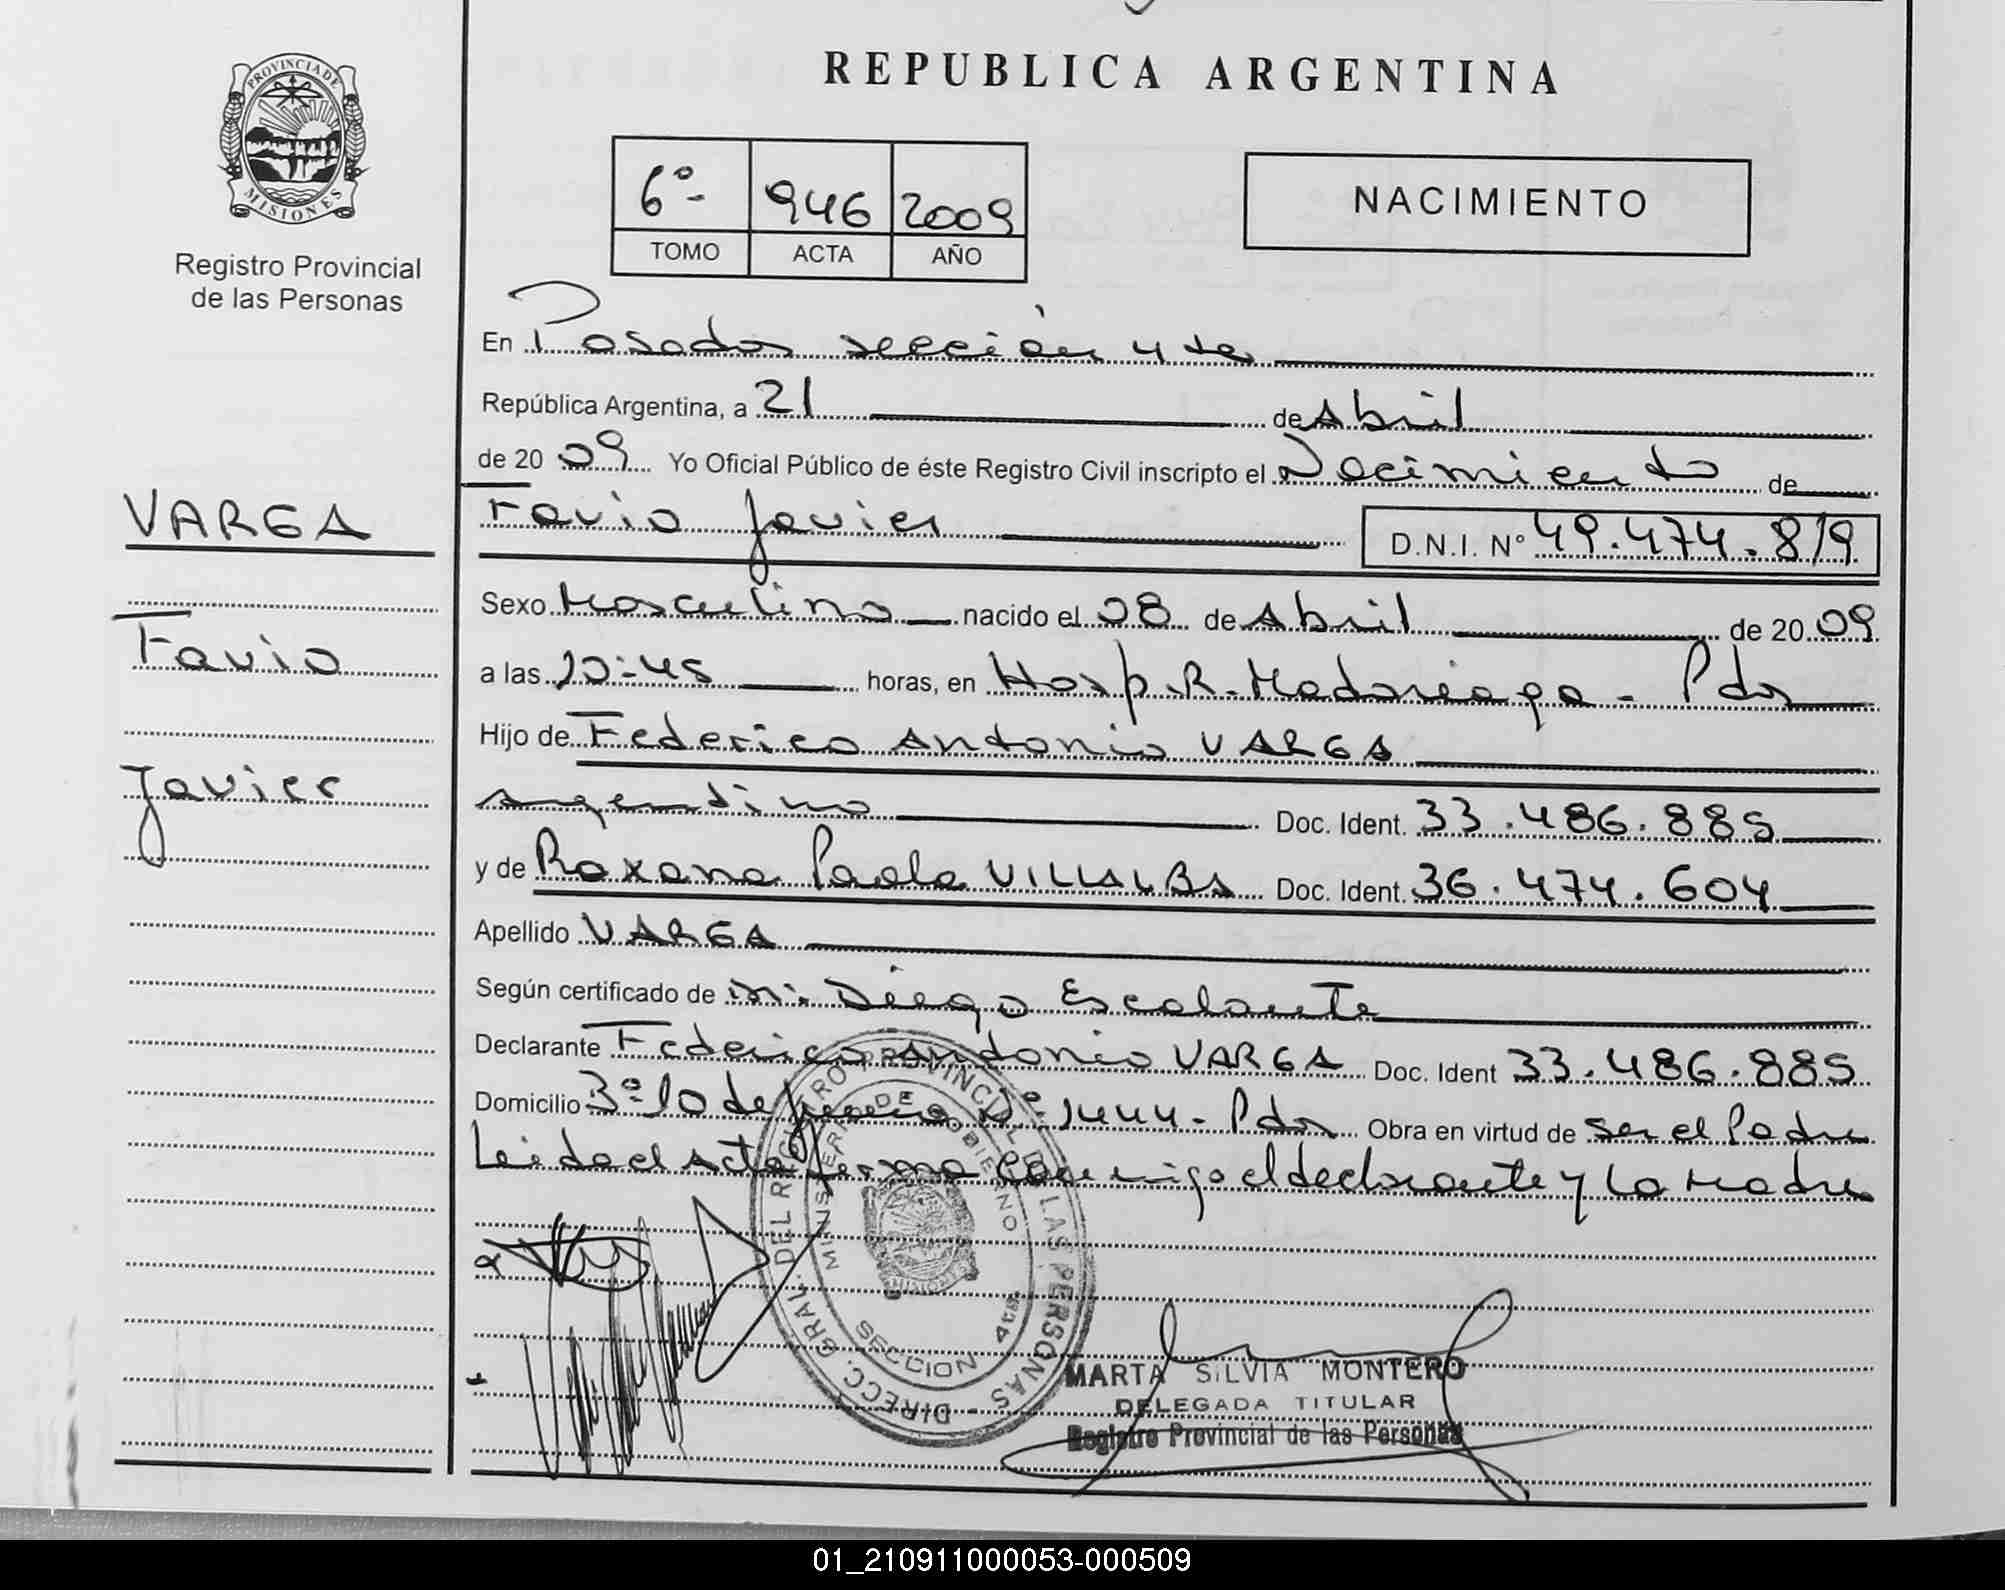 PROVINCIA DE
MISIONES
Registro Provincial
de las Personas
REPUBLICA ARGENTINA
6º- 946 2009
TOMO ACTA AÑO
NACIMIENTO
En Posadas sección 4ta
República Argentina, a 21 de Abril
de 20 09 Yo Oficial Público de éste Registro Civil inscripto el Nacimiento de
Favio Javier D.N.I. Nº 49.474.819
VARGA
Favio
Javier
Sexo Masculino nacido el 08 de Abril de 20 09
a las 10:45 horas, en Hosp. R. Madariaga - Pdas
Hijo de Federico Antonio VARGA
argentino Doc. Ident. 33.486.885
y de Roxana Paola VILLALBA Doc. Ident. 36.474.604
Apellido VARGA
Según certificado de Dr. Diego Escalante
Declarante Federico Antonio VARGA Doc. Ident 33.486.885
Domicilio Bº 10 de Nº 1444 - Pdas Obra en virtud de ser el Padre
Leida el Acta firma conmigo el declarante y La Madre
DIRECC. GRAL. DEL REGISTRO PROVINCIAL DE LAS PERSONAS
MINISTERIO DE GOBIERNO
MISIONES
SECCION 4ta.
MARTA SILVIA MONTERO
DELEGADA TITULAR
Registro Provincial de las Personas
01_210911000053-000509